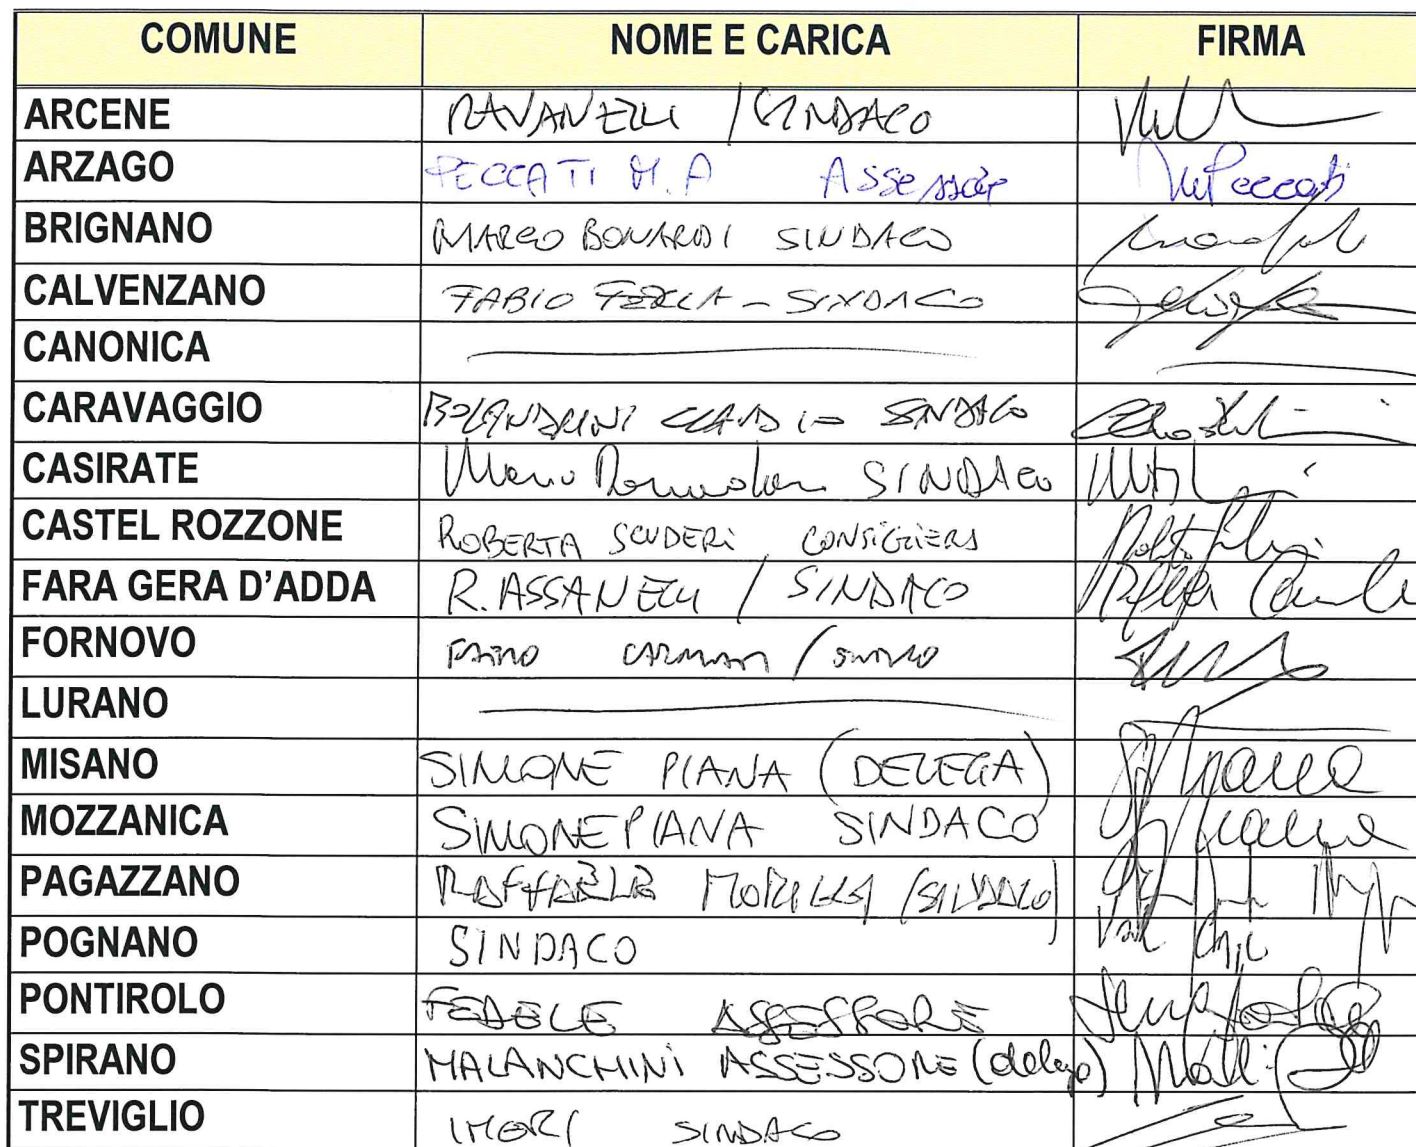 COMUNE NOME E CARICA FIRMA
ARCENE RAVANELLI / SINDACO
ARZAGO PECCATI M.A Assessore MPeccati
BRIGNANO MARCO BONARDI SINDACO
CALVENZANO FABIO FERLA - SINDACO
CANONICA
CARAVAGGIO BOLANDRINI CLAUDIO SINDACO
CASIRATE Mario SINDACO
CASTEL ROZZONE ROBERTA SCUDERI CONSIGLIERE
FARA GERA D'ADDA R. ASSANELLI / SINDACO
FORNOVO / SINDACO
LURANO
MISANO SIMONE PIANA (DELEGA) Piana
MOZZANICA SIMONE PIANA SINDACO Piana
PAGAZZANO RAFFAELE MORIGGI (SINDACO)
POGNANO SINDACO
PONTIROLO FEDELE ASSESSORE
SPIRANO MALANCHINI ASSESSORE (delega)
TREVIGLIO IMERI SINDACO